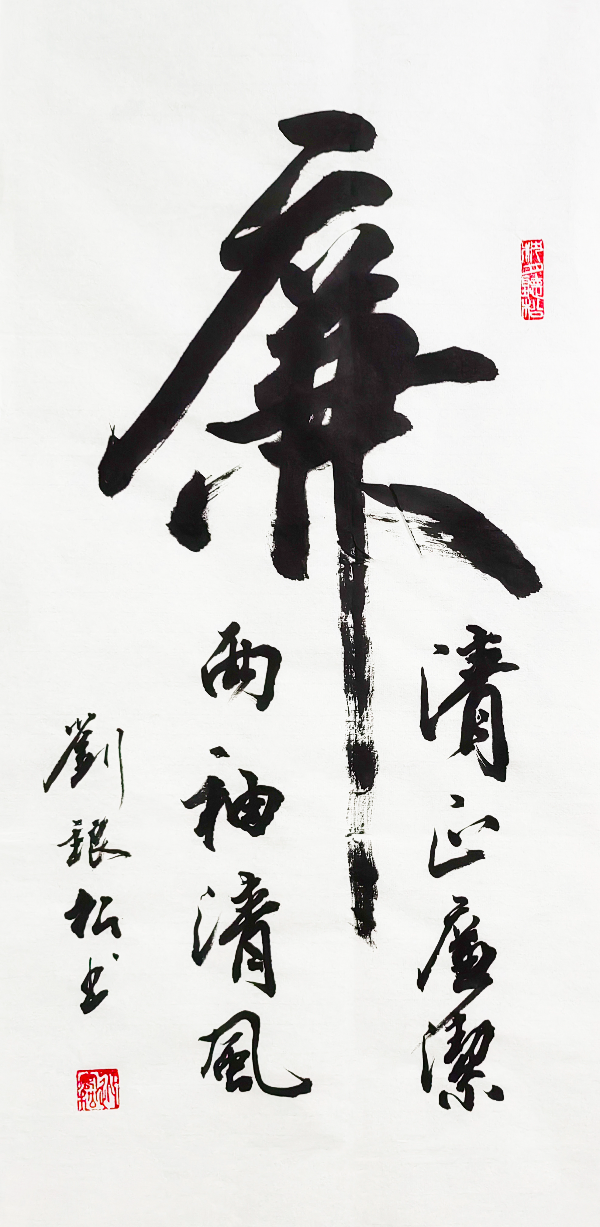 廉
清正廉潔
兩袖清風
劉銀松书